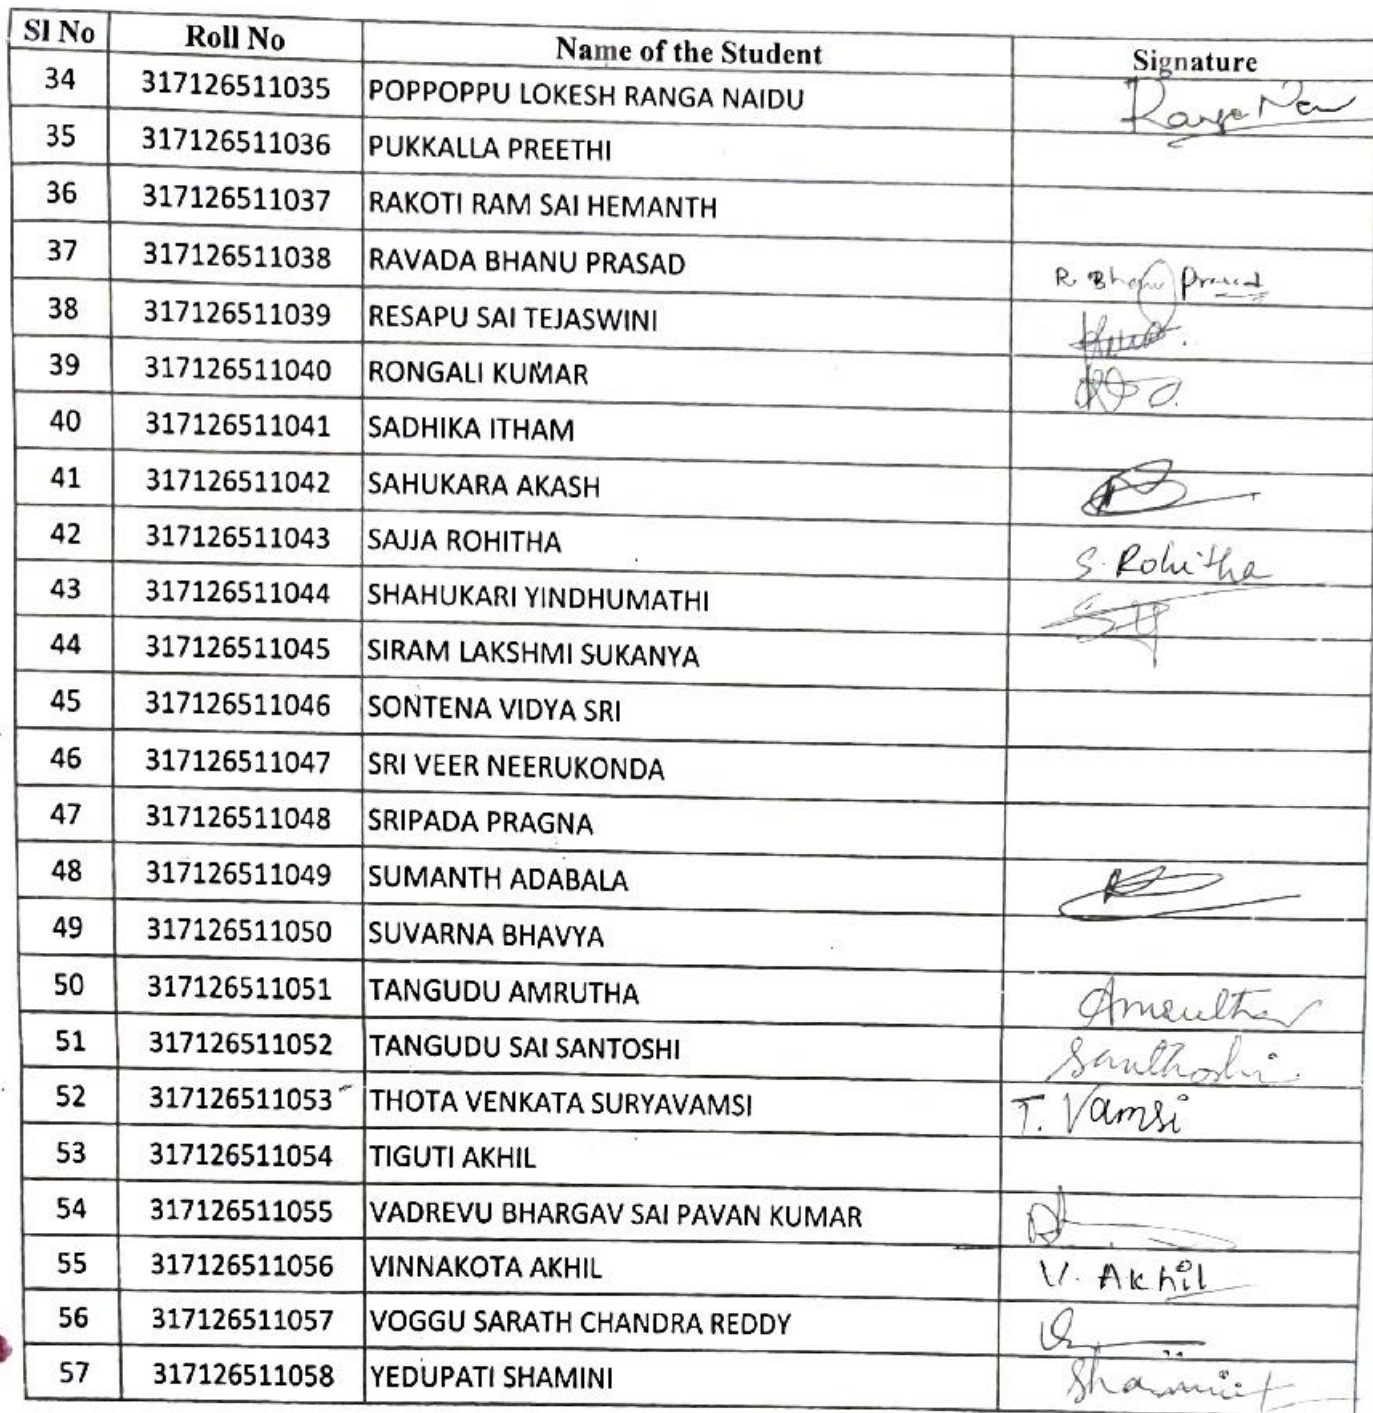 Sl No Roll No Name of the Student Signature
34 317126511035 POPPOPPU LOKESH RANGA NAIDU
35 317126511036 PUKKALLA PREETHI
36 317126511037 RAKOTI RAM SAI HEMANTH
37 317126511038 RAVADA BHANU PRASAD R. Bhanu Prasad
38 317126511039 RESAPU SAI TEJASWINI
39 317126511040 RONGALI KUMAR
40 317126511041 SADHIKA ITHAM
41 317126511042 SAHUKARA AKASH
42 317126511043 SAJJA ROHITHA S. Rohitha
43 317126511044 SHAHUKARI YINDHUMATHI
44 317126511045 SIRAM LAKSHMI SUKANYA
45 317126511046 SONTENA VIDYA SRI
46 317126511047 SRI VEER NEERUKONDA
47 317126511048 SRIPADA PRAGNA
48 317126511049 SUMANTH ADABALA
49 317126511050 SUVARNA BHAVYA
50 317126511051 TANGUDU AMRUTHA Amrutha
51 317126511052 TANGUDU SAI SANTOSHI Santhoshi
52 317126511053 THOTA VENKATA SURYAVAMSI T. Vamsi
53 317126511054 TIGUTI AKHIL
54 317126511055 VADREVU BHARGAV SAI PAVAN KUMAR
55 317126511056 VINNAKOTA AKHIL V. Akhil
56 317126511057 VOGGU SARATH CHANDRA REDDY
57 317126511058 YEDUPATI SHAMINI